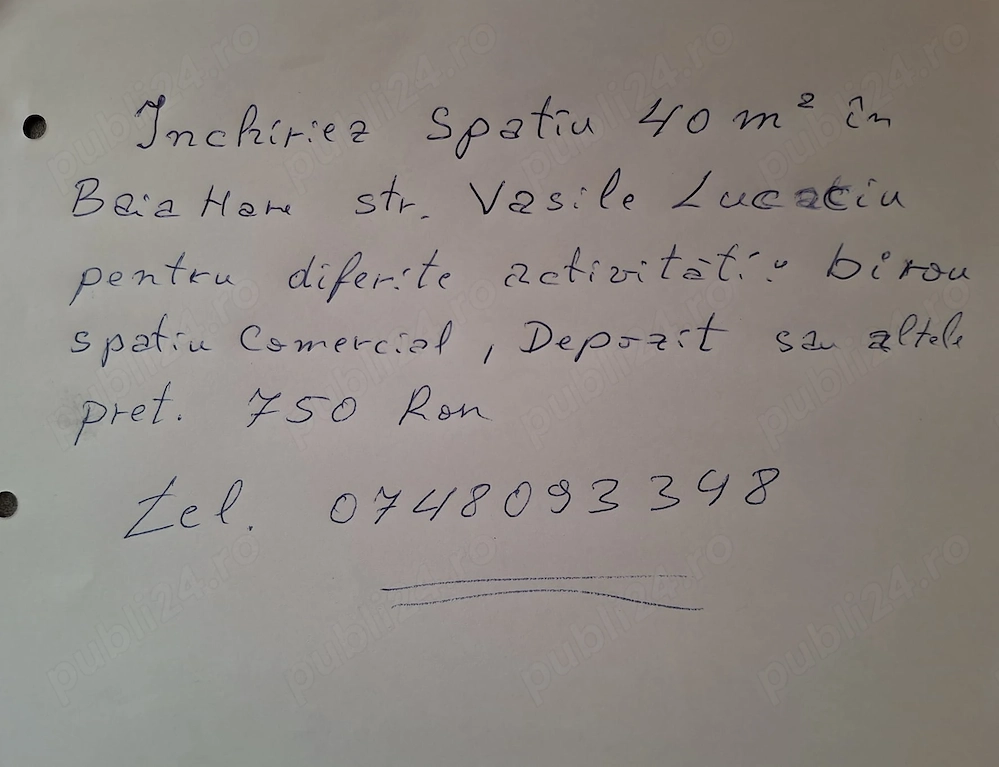 Inchiriez spatiu 40 m² în
Baia Mare str. Vasile Lucaciu
pentru diferite activități: birou
spatiu Comercial, Depozit sau altele
pret. 750 Ron
tel. 0748093398
publi24.ro